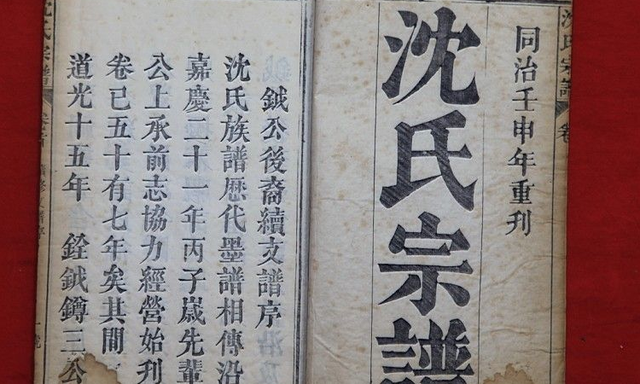 同治壬申年重刊
沈氏宗譜
鉞公後裔續支譜序
沈氏族譜歴代墨譜相傳沿
嘉慶二十一年丙子嵗先輩
公上承前志協力經營始刋
卷已五十有七年矣其間
道光十五年 銓鉞鐏三公
沈氏宗譜